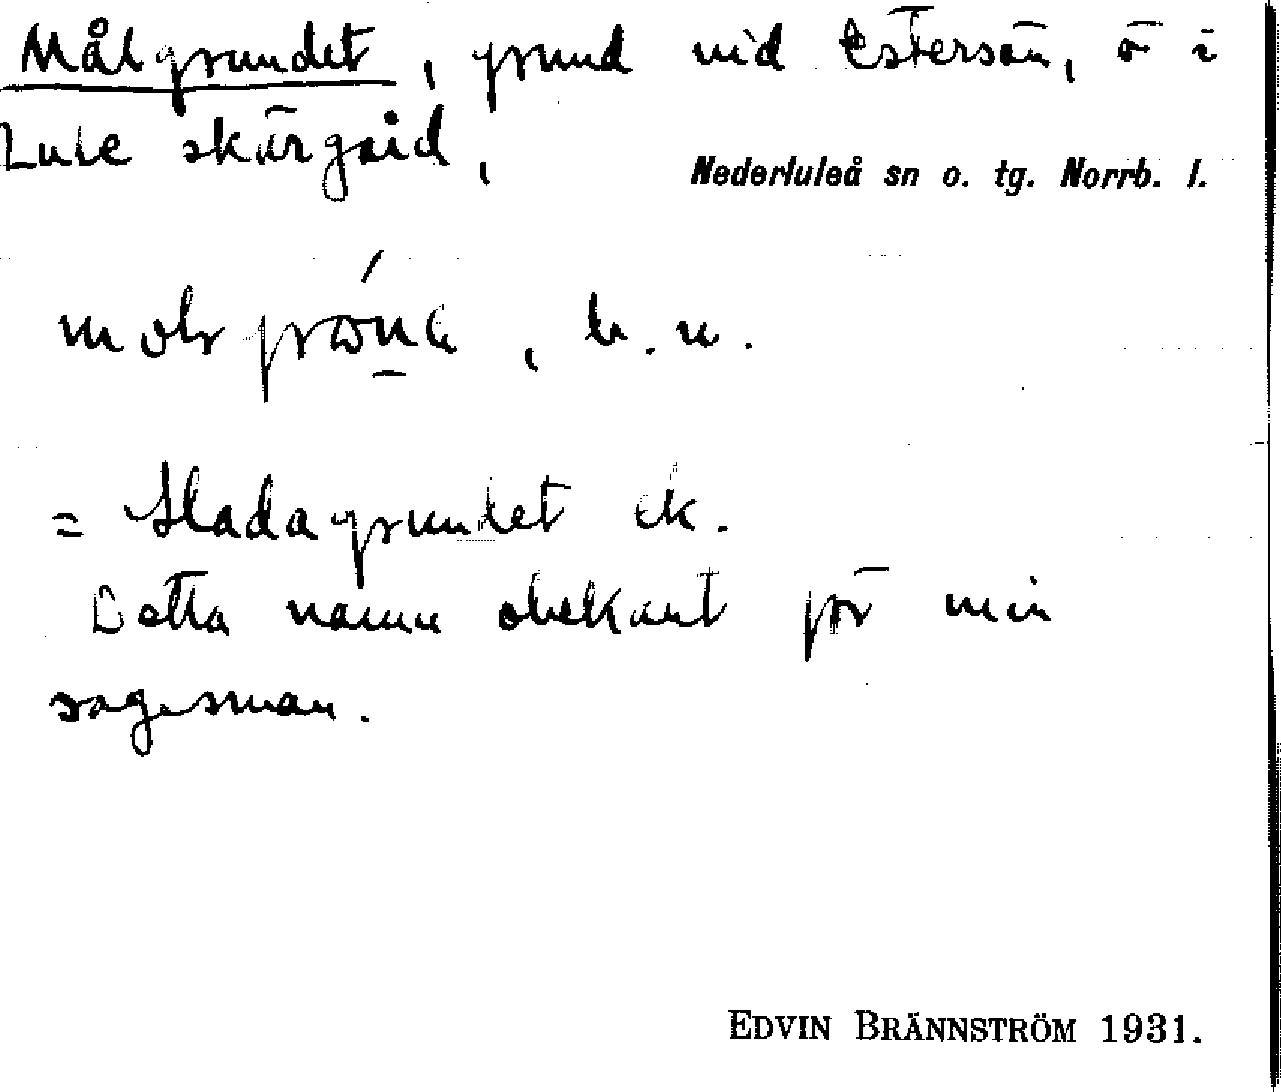 Målgrundet, grund vid Estersön, ö i
Lule skärgård,
Nederluleå sn o. tg. Norrb. l.
b. n.
= Sladagrundet ek.
Detta namn obekant för min
sagesman.
EDVIN BRÄNNSTRÖM 1931.